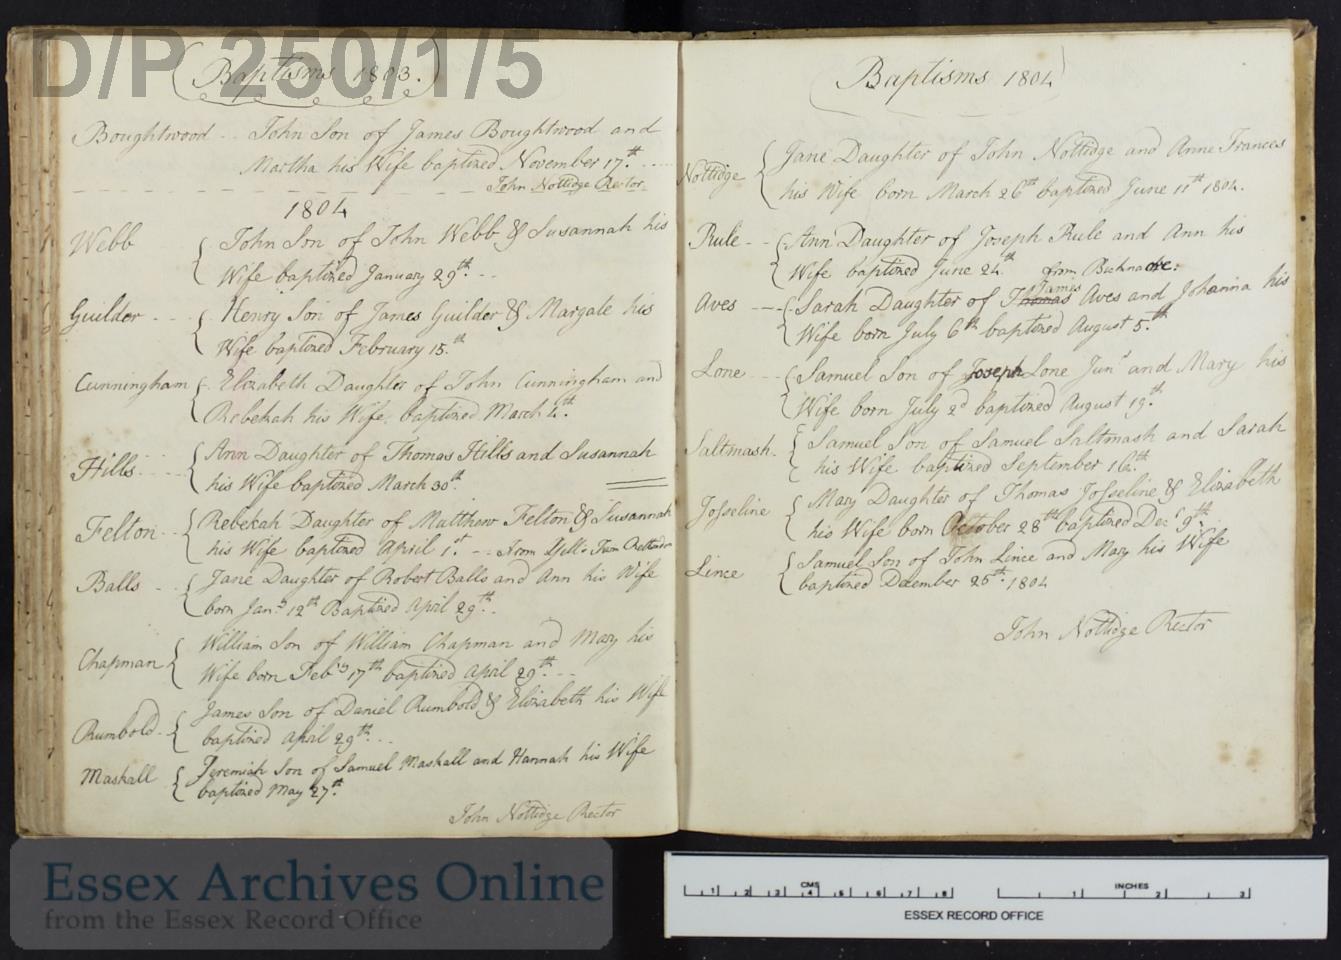 D/P 250/1/5
Baptisms 1803.
Boughtwood -- John Son of James Boughtwood and
Martha his Wife baptized November 17.th
John Nottidge Rector
1804
Webb John Son of John Webb & Susannah his
Wife baptized January 29.th --
Guilder --- Henry Son of James Guilder & Margate his
Wife baptized February 15.th
Cunningham Elizabeth Daughter of John Cunningham and
Rebekah his Wife baptized March 4.th
Hills Ann Daughter of Thomas Hills and Susannah
his Wife baptized March 30th.
Felton -- Rebekah Daughter of Matthew Felton & Susannah
his Wife baptized April 1.st -- from
Balls -- Jane Daughter of Robert Balls and Ann his Wife
born Jan.y 12th Baptized April 29th --
Chapman William Son of William Chapman and Mary his
Wife born Feb.y 17th baptized April 29.th --
Rumbold -- James Son of Daniel Rumbold & Elizabeth his Wife
baptized April 29th --
Maskall Jeremiah Son of Samuel Maskall and Hannah his Wife
baptized May 27.th
John Nottidge Rector
Baptisms 1804
Nottidge Jane Daughter of John Nottidge and Anne Frances
his Wife born March 26th baptized June 11th 1804.
Rule -- Ann Daughter of Joseph Rule and Ann his
Wife baptized June 24.th from Bicknacre.
James
Aves --- Sarah Daughter of Thomas Aves and Johanna his
Wife born July 6th baptized August 5.th
Lone --- Samuel Son of Joseph Lone Junr and Mary his
Wife born July 2d baptized August 19.th
Saltmash. Samuel Son of Samuel Saltmash and Sarah
his Wife baptized September 16.th
Josseline Mary Daughter of Thomas Josseline & Elizabeth
his Wife born October 28th baptized Decr 9th.
Lince Samuel Son of John Lince and Mary his Wife
baptized December 25th. 1804
John Nottidge Rector
Essex Archives Online
from the Essex Record Office
CMS
1 2 3 4 5 6 7 8
INCHES
1 2 3
ESSEX RECORD OFFICE